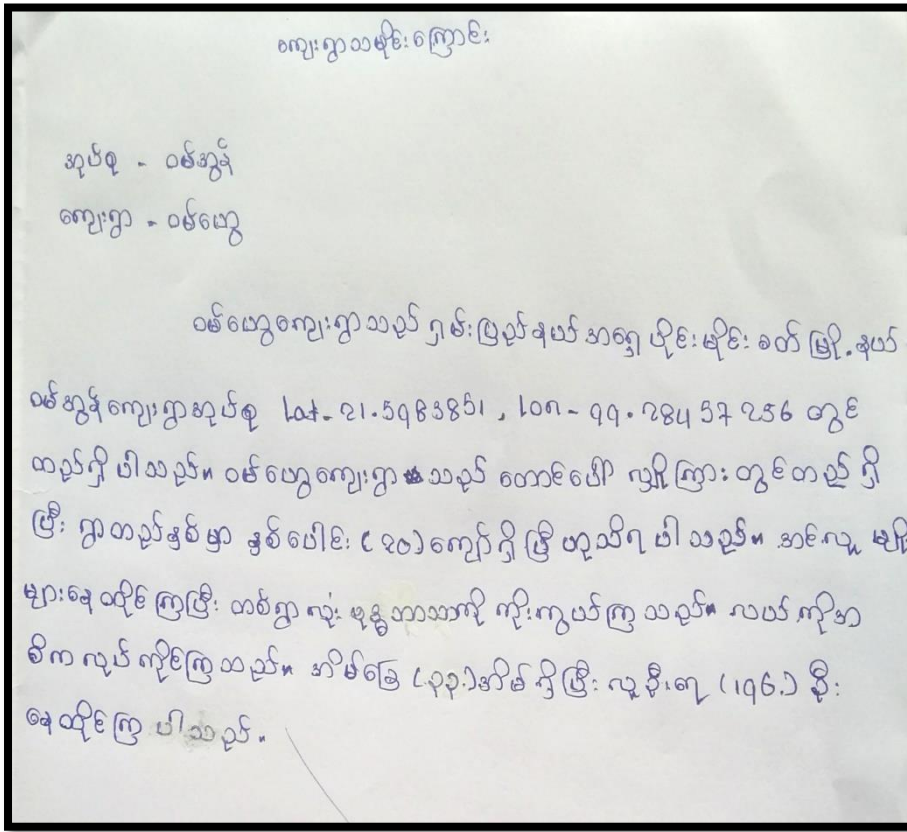 ကျေးရွာသမိုင်းကြောင်း
အုပ်စု - ဝမ်အွန်
ကျေးရွာ - ဝမ်ဟွေ
ဝမ်ဟွေကျေးရွာသည် ရှမ်းပြည်နယ် အရှေ့ ပိုင်း မိုင်းခတ် မြို့နယ်
ဝမ်အွန်ကျေးရွာအုပ်စု lat-21.5983851, lon-99.28457256 တွင်
တည်ရှိ ပါသည်။ ဝမ်ဟွေကျေးရွာ သည် တောင်ပေါ် လျှိုကြား တွင်တည် ရှိ
ပြီး ရွာတည်နှစ်မှာ နှစ်ပေါင်း (၃၀)ကျော်ရှိ ပြီ ဟုသိရ ပါသည်။ အင်လူ မျိုး
များနေထိုင်ကြပြီး တစ်ရွာလုံး ဗုဒ္ဓဘာသာကို ကိုးကွယ်ကြသည်။ လယ်ကိုအ
ဓိကလုပ်ကိုင်ကြသည်။ အိမ်ခြေ (၃၃)အိမ်ရှိပြီး လူဦးရေ (196) ဦး
နေထိုင်ကြ ပါသည်။